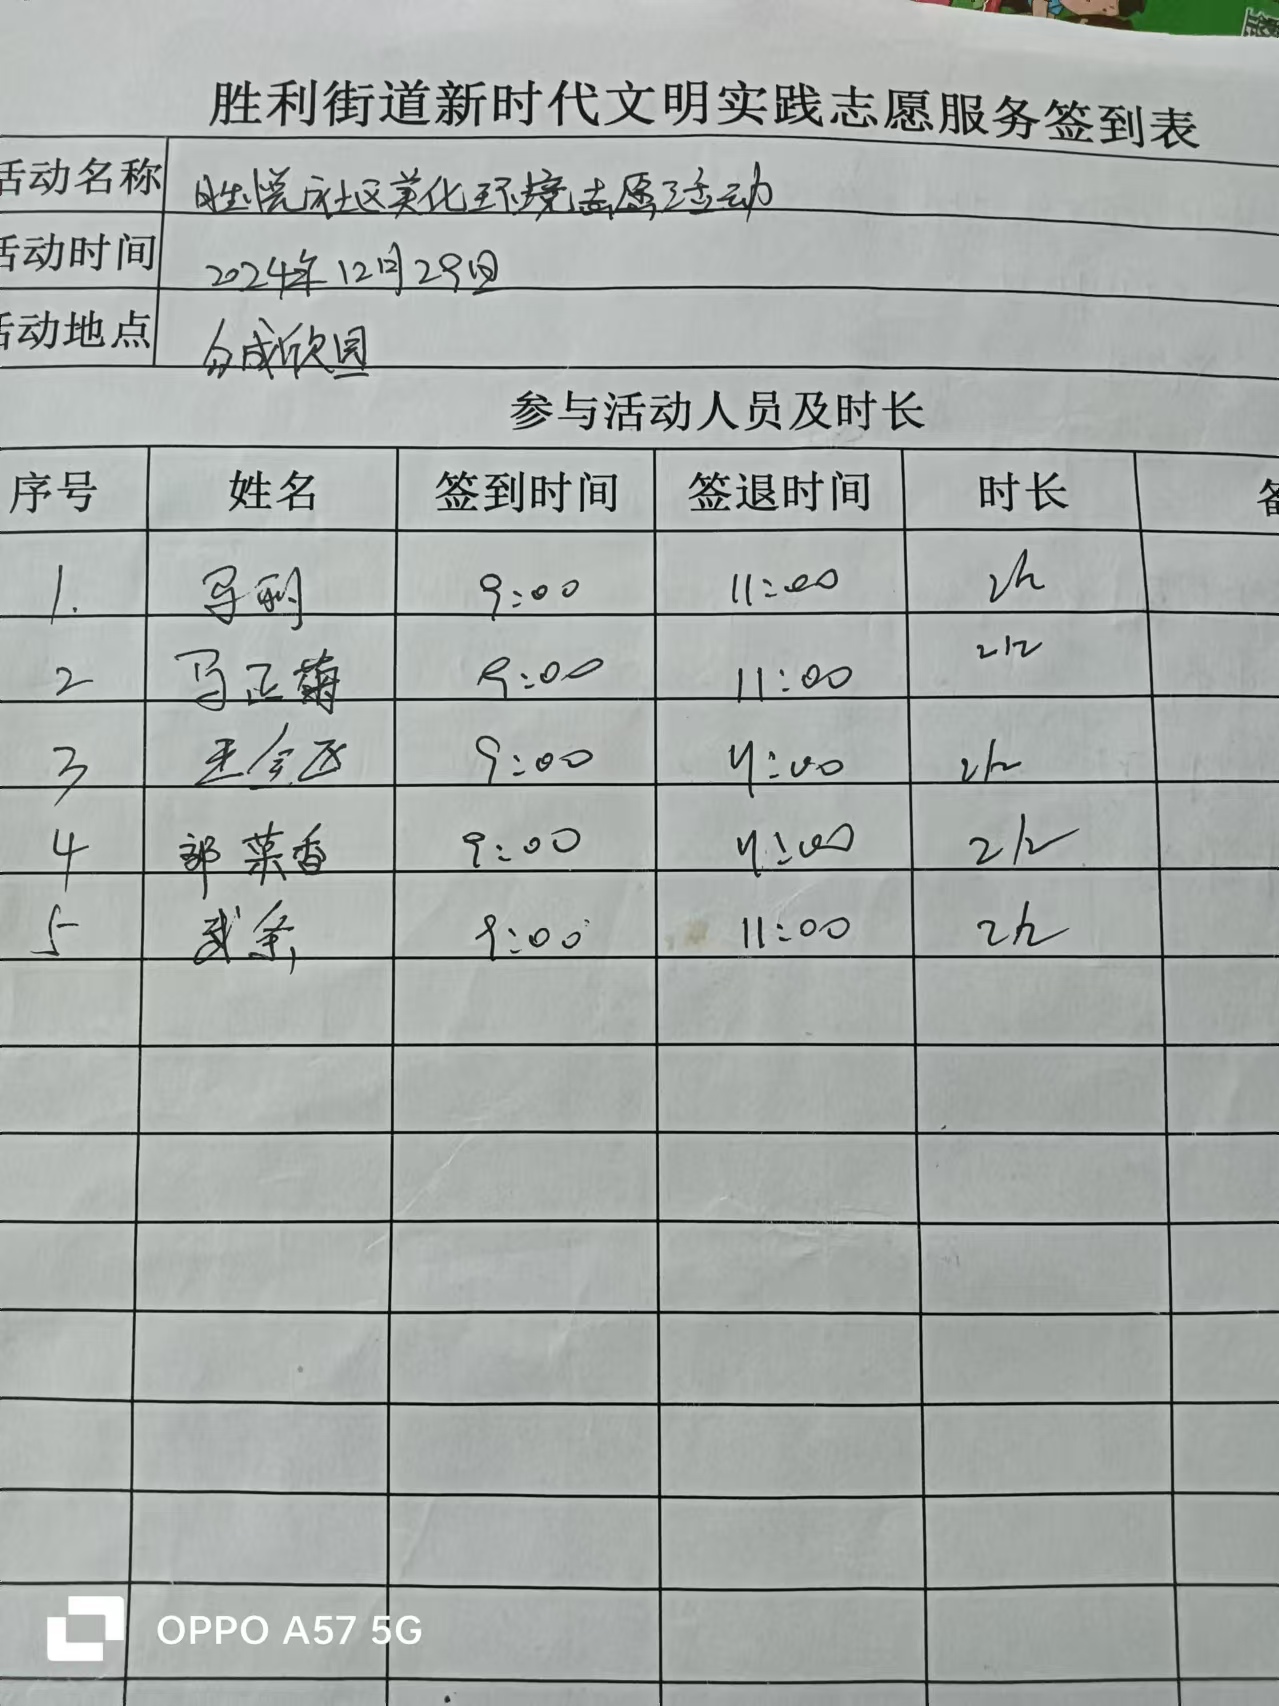 胜利街道新时代文明实践志愿服务签到表
活动名称 胜悦社区美化环境志愿活动
活动时间 2024年12月29日
活动地点 合成欣园
参与活动人员及时长
序号 姓名 签到时间 签退时间 时长 备
1. 马利 9:00 11:00 2h
2 马正菊 9:00 11:00 2h
3 9:00 11:00 2h
4 郭菜香 9:00 11:00 2h
5 9:00 11:00 2h
OPPO A57 5G